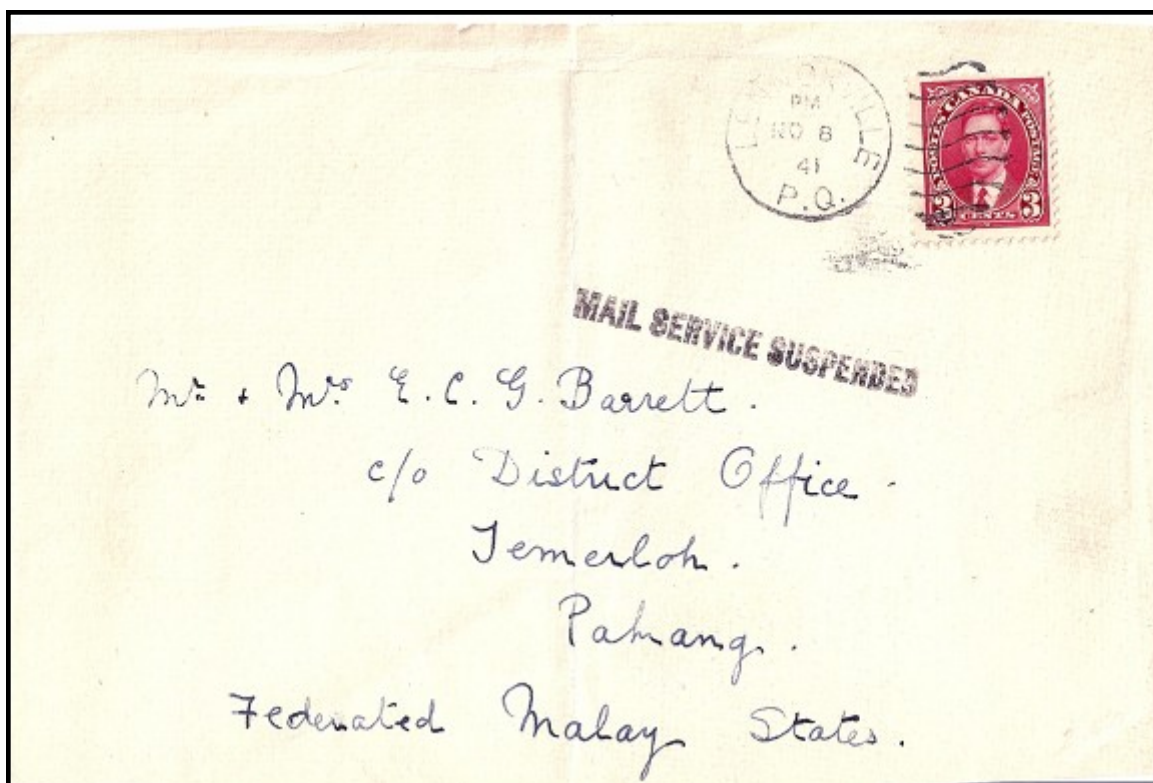 LENNOXVILLE
PM
NO 8
41
P.Q.
POSTES CANADA POSTAGE
3 CENTS 3
MAIL SERVICE SUSPENDED
Mr & Mrs E. C. G. Barrett.
c/o District Office.
Temerloh.
Pahang.
Federated Malay States.